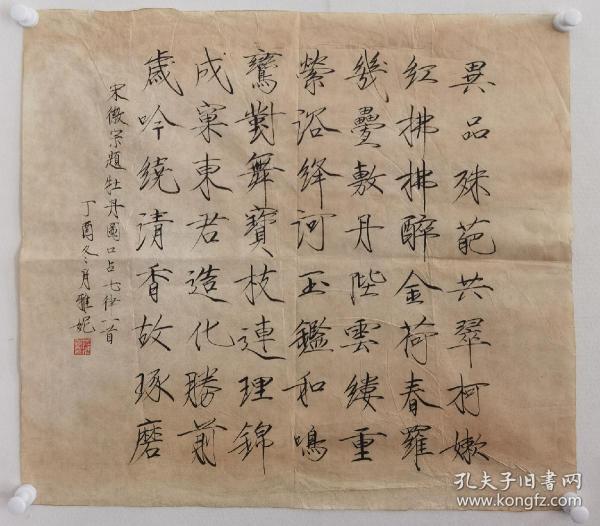 異品殊葩共翠柯嫩
紅拂拂醉金荷春羅
幾疊敷丹陛雲縷重
縈浴絳河玉鑑和鳴
鸞對舞寶枝連理錦
成窠東君造化勝前
歲吟繞清香故琢磨
宋徽宗題牡丹圖口占七律一首
丁酉冬月雅妮
孔夫子旧书网
www.kongfz.com